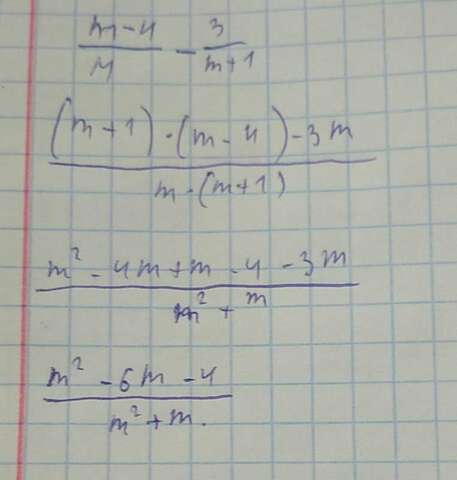 (m-4)/m - 3/(m+1)
((m+1)·(m-4)-3m)/(m·(m+1))
(m²-4m+m-4-3m)/(m²+m)
(m²-6m-4)/(m²+m.)